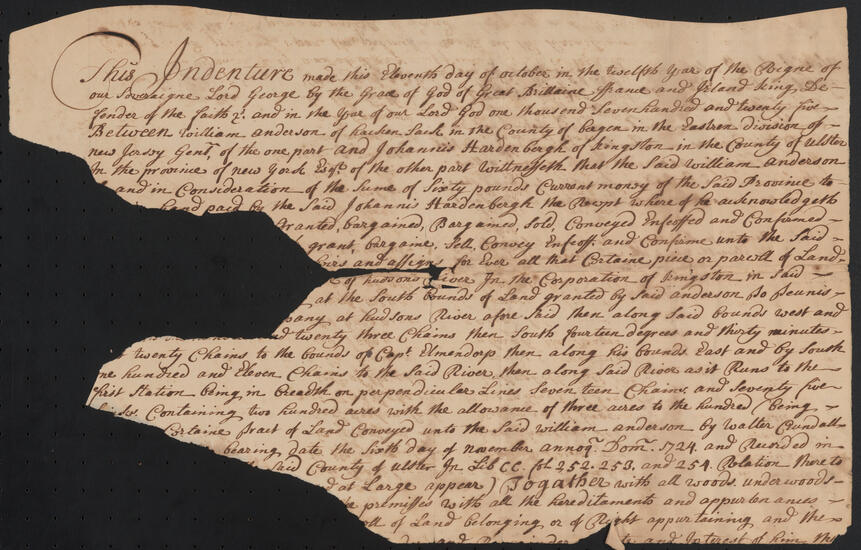 This Indenture made this Eleventh day of october in the twelfth Year of the Reigne of
our Soveraigne Lord George by the Grace of God of Great Brittaine ffrance and Irland King De-
fender of the faith &. and in the Year of our Lord God one thousand Seven hundred and twenty five
Between William anderson of hacken Sack in the County of bargen in the Eastren division of
new Jersey Gent. of the one part And Johannis Hardenbergh of Kingston in the County of Ulster
In the province of new York Esqr. of the other part Wittnesseth that the Said William anderson
and in Consideration of the Sume of Sixty pounds Currant money of the Said Province to
hand paid by the Said Johannis Hardenbergh the Recept where of he acknowledgeth
Granted, bargained, Bargained, Sold, Conveyed Enfeoffed and Confirmed
grant, bargaine, Sell, Convey Enfeoff: and Confirme unto the Said
heirs and assigns for Ever all that Certaine piece or parcell of Land
of hudsons River In the Corporation of Kingston in Said
at the South bounds of Land granted by Said anderson to
pany at hudsons River afore Said then along Said bounds west and
and twenty three Chains then South fourteen degrees and thirty minutes
twenty Chains to the bounds of Capt. Elmendorp then along his bounds East and by South
ne hundred and Eleven Chains to the Said River, then along Said River as it Runs to the
first Station being in breadth on perpendicular Lines Seven teen Chains and Seventy five
Links. Containing two hundred acres with the allowance of three acres to the hundred (being
Certaine tract of Land Conveyed unto the Said william anderson by Walter
bearing date the Sixth day of november annoq. Dom. 1724. and Recorded in
Said County of Ulster In Lib CC. fol 252. 253. and 254. Relation there to
d at Large appear) Togather with all woods. underwoods
e premisses with all the hereditaments and appurtenances
ll of Land belonging, or of Right appurtaining and the
and Remainder and Interest of him the